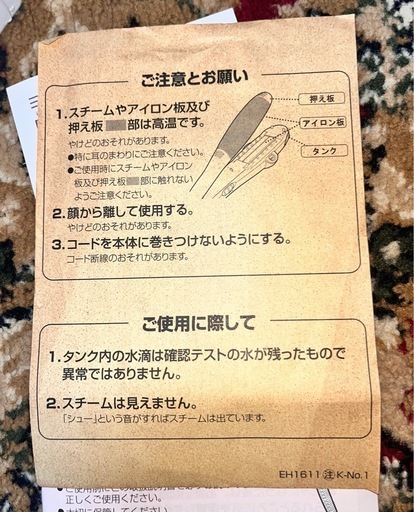 ご注意とお願い
1.スチームやアイロン板及び
押え板 部は高温です。
やけどのおそれがあります。
●特に耳のまわりにご注意ください。
●ご使用時にスチームやアイロン
板及び押え板 部に触れない
ようご注意ください。
押え板
アイロン板
タンク
2.顔から離して使用する。
やけどのおそれがあります。
3.コードを本体に巻きつけないようにする。
コード断線のおそれがあります。
ご使用に際して
1.タンク内の水滴は確認テストの水が残ったもので
異常ではありません。
2.スチームは見えません。
「シュー」という音がすればスチームは出ています。
EH1611 注 K-No.1
正しくご使用ください。